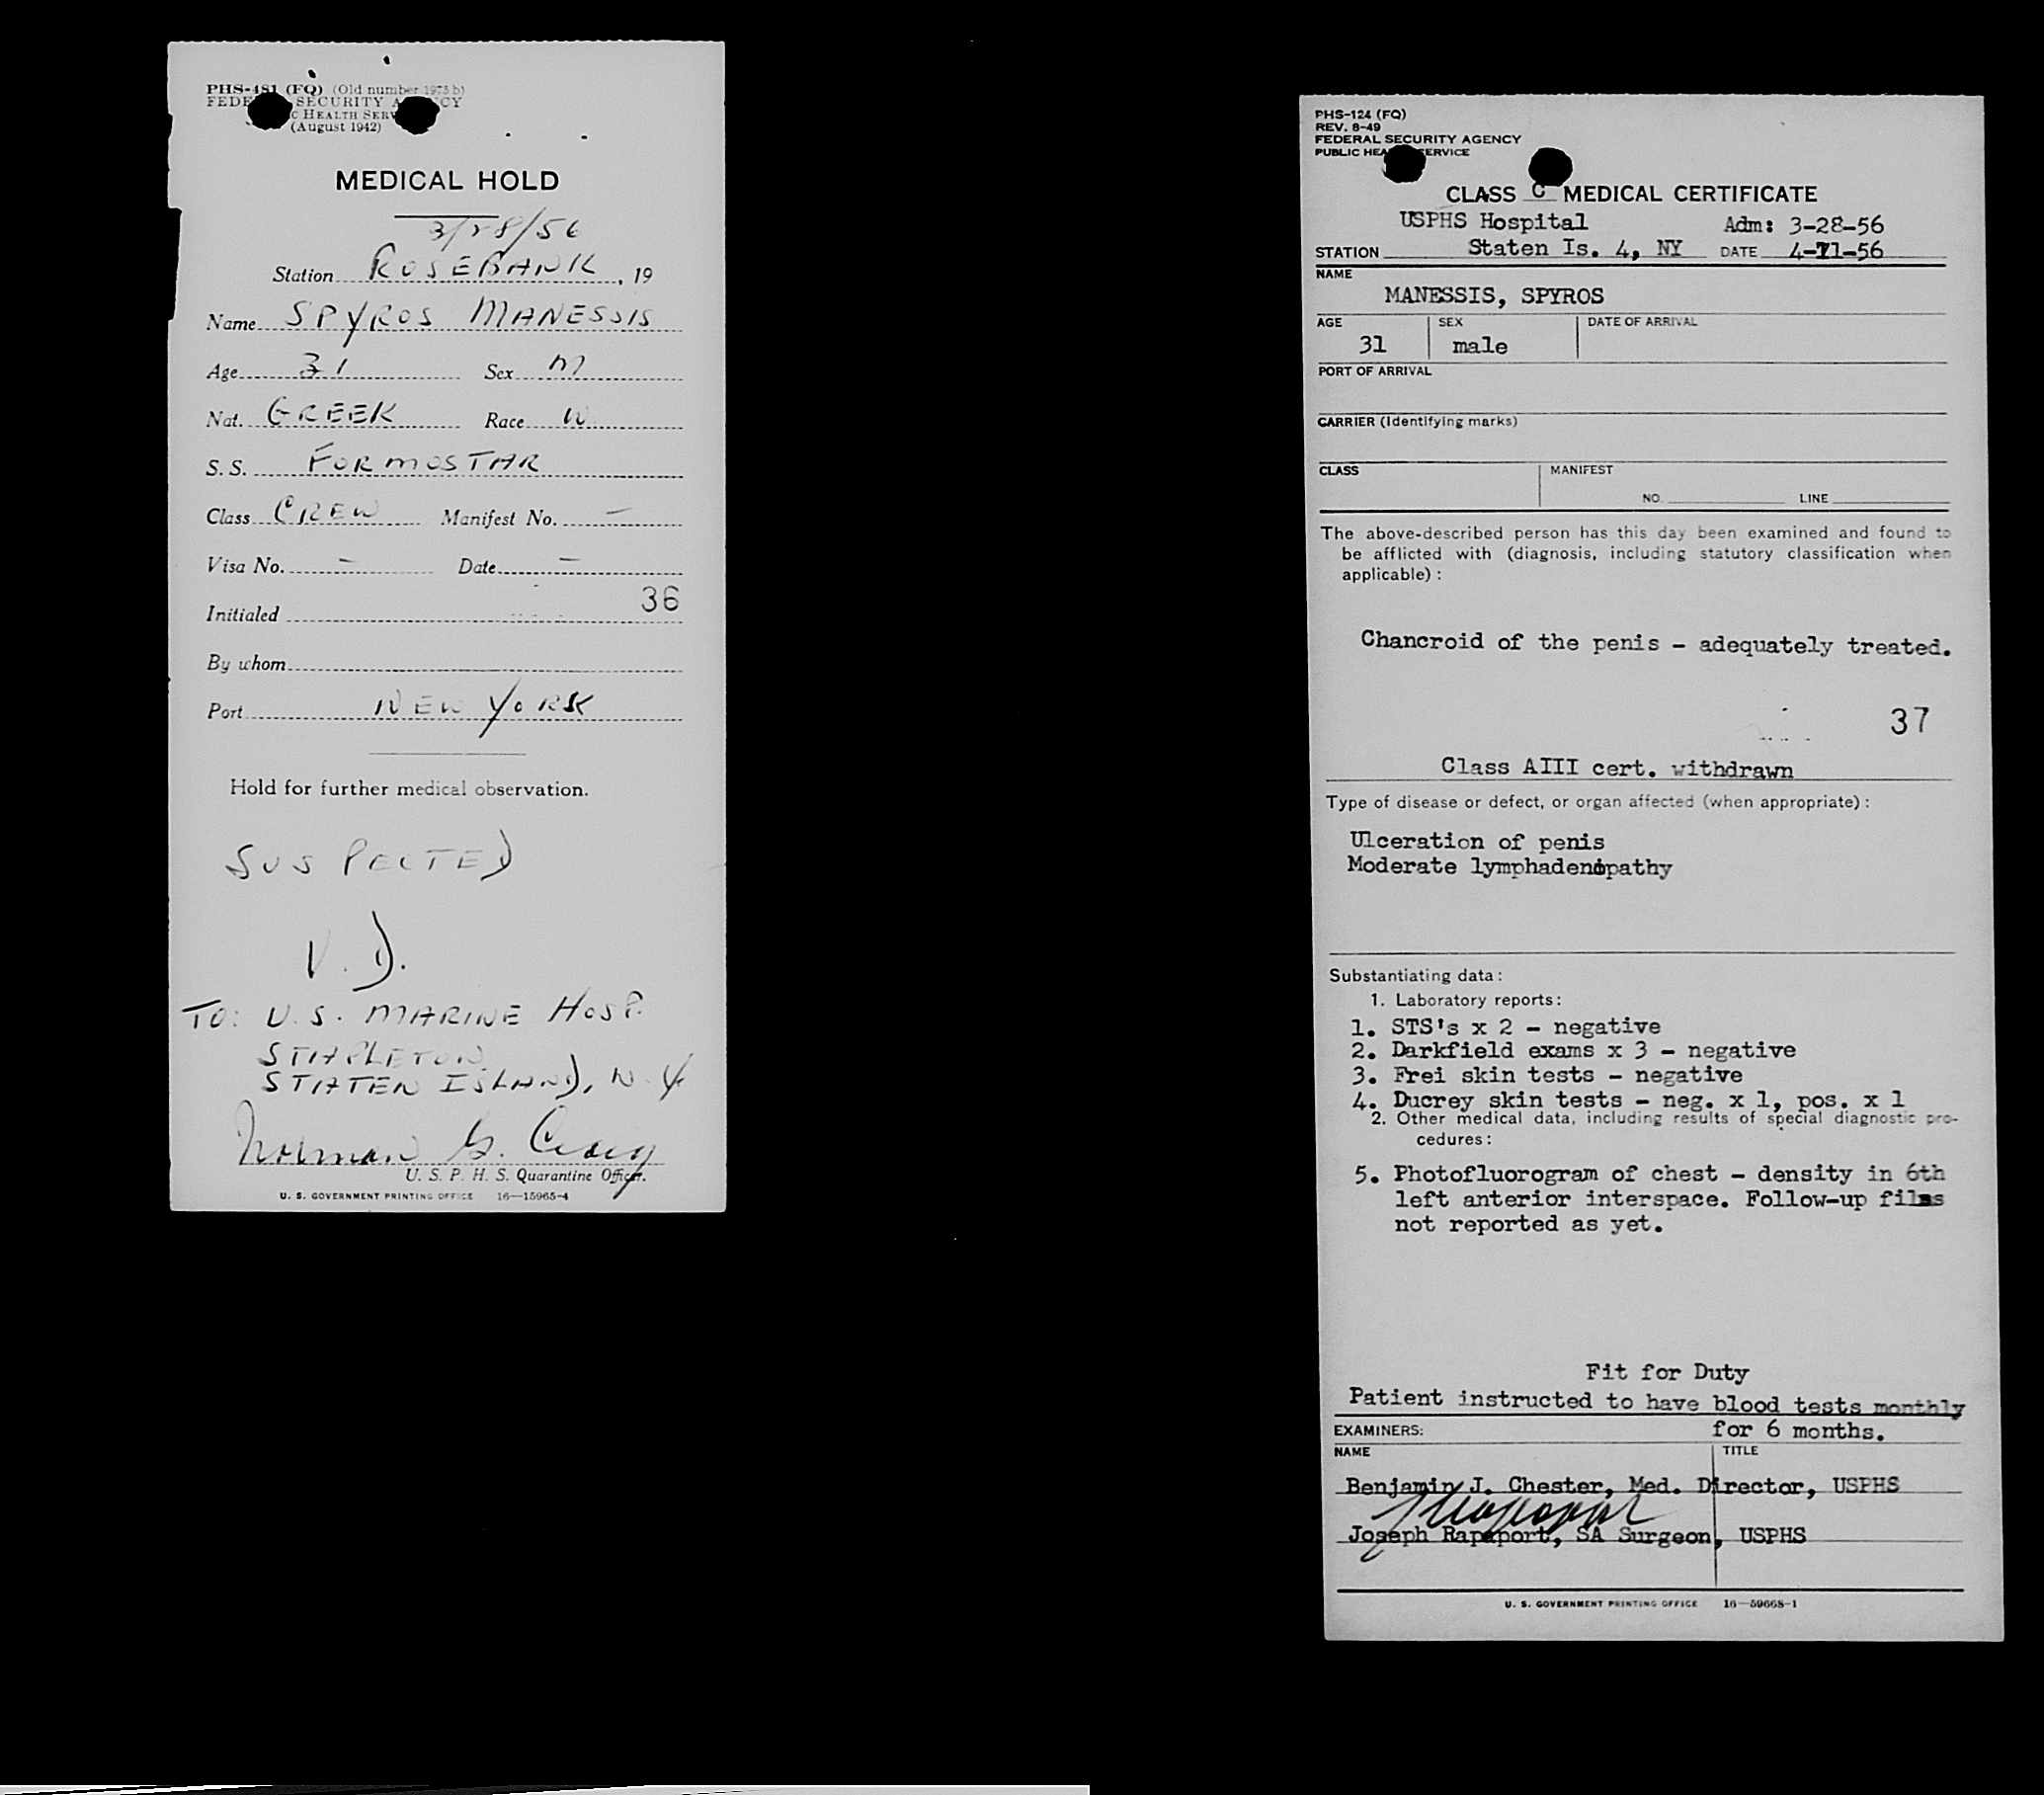 PHS-481 (FQ) (Old number 1975 b)
FEDE SECURITY A CY
C HEALTH SERV
(August 1942)
MEDICAL HOLD
3/28/56
Station ROSEBANK, 19
Name SPYROS MANESSIS
Age 31 Sex M
Nat. GREEK Race W
S. S. FORMOSTAR
Class CREW Manifest No. —
Visa No. — Date —
36
Initialed
By whom
Port NEW YORK
Hold for further medical observation.
SUSPECTED
V. D.
TO: U.S. MARINE HOSP.
STAPLETON
STATEN ISLAND, N.Y.
Norman G.
U. S. P. H. S. Quarantine Officer.
U. S. GOVERNMENT PRINTING OFFICE 16—15965-4
PHS-124 (FQ)
REV. 8-49
FEDERAL SECURITY AGENCY
PUBLIC HEA SERVICE
CLASS C MEDICAL CERTIFICATE
USPHS Hospital Adm: 3-28-56
STATION Staten Is. 4, NY DATE 4-11-56
NAME
MANESSIS, SPYROS
AGE SEX DATE OF ARRIVAL
31 male
PORT OF ARRIVAL
CARRIER (Identifying marks)
CLASS MANIFEST
NO. LINE
The above-described person has this day been examined and found to
be afflicted with (diagnosis, including statutory classification when
applicable) :
Chancroid of the penis - adequately treated.
37
Class AIII cert. withdrawn
Type of disease or defect, or organ affected (when appropriate) :
Ulceration of penis
Moderate lymphadenopathy
Substantiating data :
1. Laboratory reports :
1. STS's x 2 - negative
2. Darkfield exams x 3 - negative
3. Frei skin tests - negative
4. Ducrey skin tests - neg. x 1, pos. x 1
2. Other medical data, including results of special diagnostic pro-
cedures :
5. Photofluorogram of chest - density in 6th
left anterior interspace. Follow-up films
not reported as yet.
Fit for Duty
Patient instructed to have blood tests monthly
EXAMINERS: for 6 months.
NAME TITLE
Benjamin J. Chester, Med. Director, USPHS
Joseph Rapaport, SA Surgeon, USPHS
U. S. GOVERNMENT PRINTING OFFICE 16—59668-1